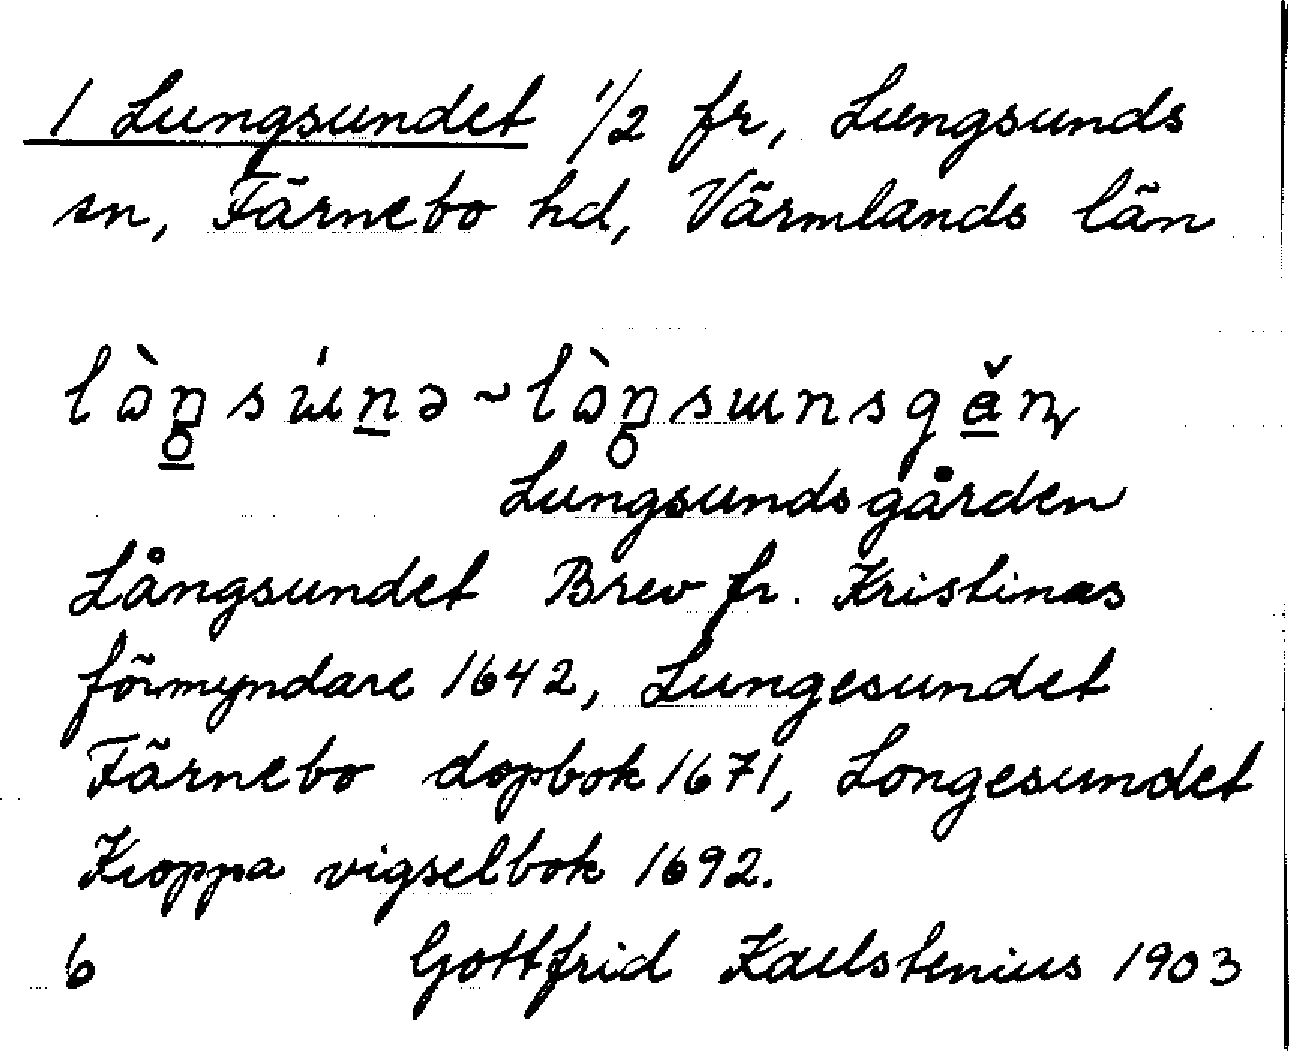 1 Lungsundet 1/2 fr, Lungsunds
sn, Färnebo hd, Värmlands län
Lungsundsgården
Långsundet Brev fr. Kristinas
förmyndare 1642, Lungesundet
Färnebo dopbok 1671, Longesundet
Kroppa vigselbok 1692.
6 Gottfrid Kallstenius 1903